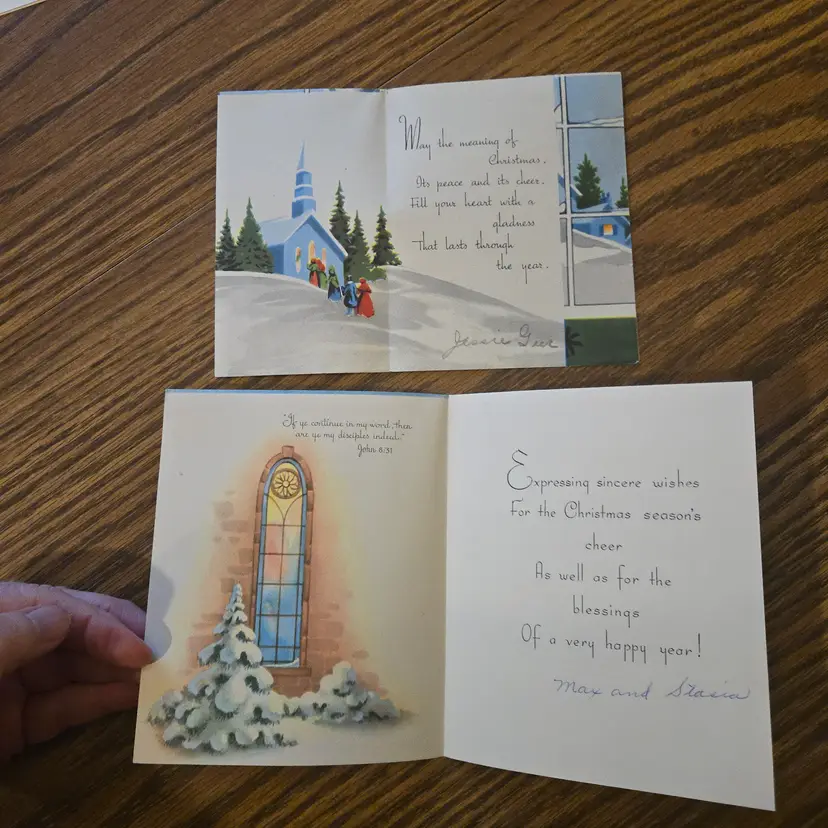 May the meaning of
Christmas,
Its peace and its cheer,
Fill your heart with a
gladness
That lasts through
the year.
Jessie Guc
"If ye continue in my word, then
are ye my disciples indeed."
John 8/31
Expressing sincere wishes
For the Christmas season's
cheer
As well as for the
blessings
Of a very happy year!
Max and Stasia